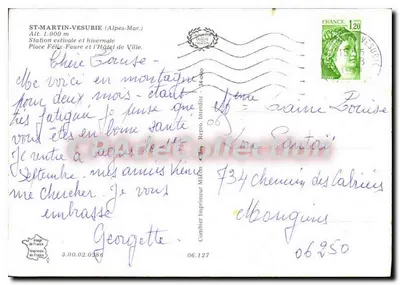 ST-MARTIN-VESUBIE (Alpes-Mar.)
Alt. 1.000 m
Station estivale et hivernale
Place Félix-Faure et l'Hôtel de Ville.
Chère Louise
Me voici en montagne
pour deux mois - étant
très fatiguée je pense que
vous êtes en bonne santé
Je rentre à le 1er
Septembre - mes amies
me chercher. Je vous
embrasse
Georgette.
3.00.02.0266
06.127
Combier Imprimeur Mâcon Repro. Interdite
FRANCE
1,20
Mme Laine Louise
734 Chemin des Cabrières
Mougins
06250